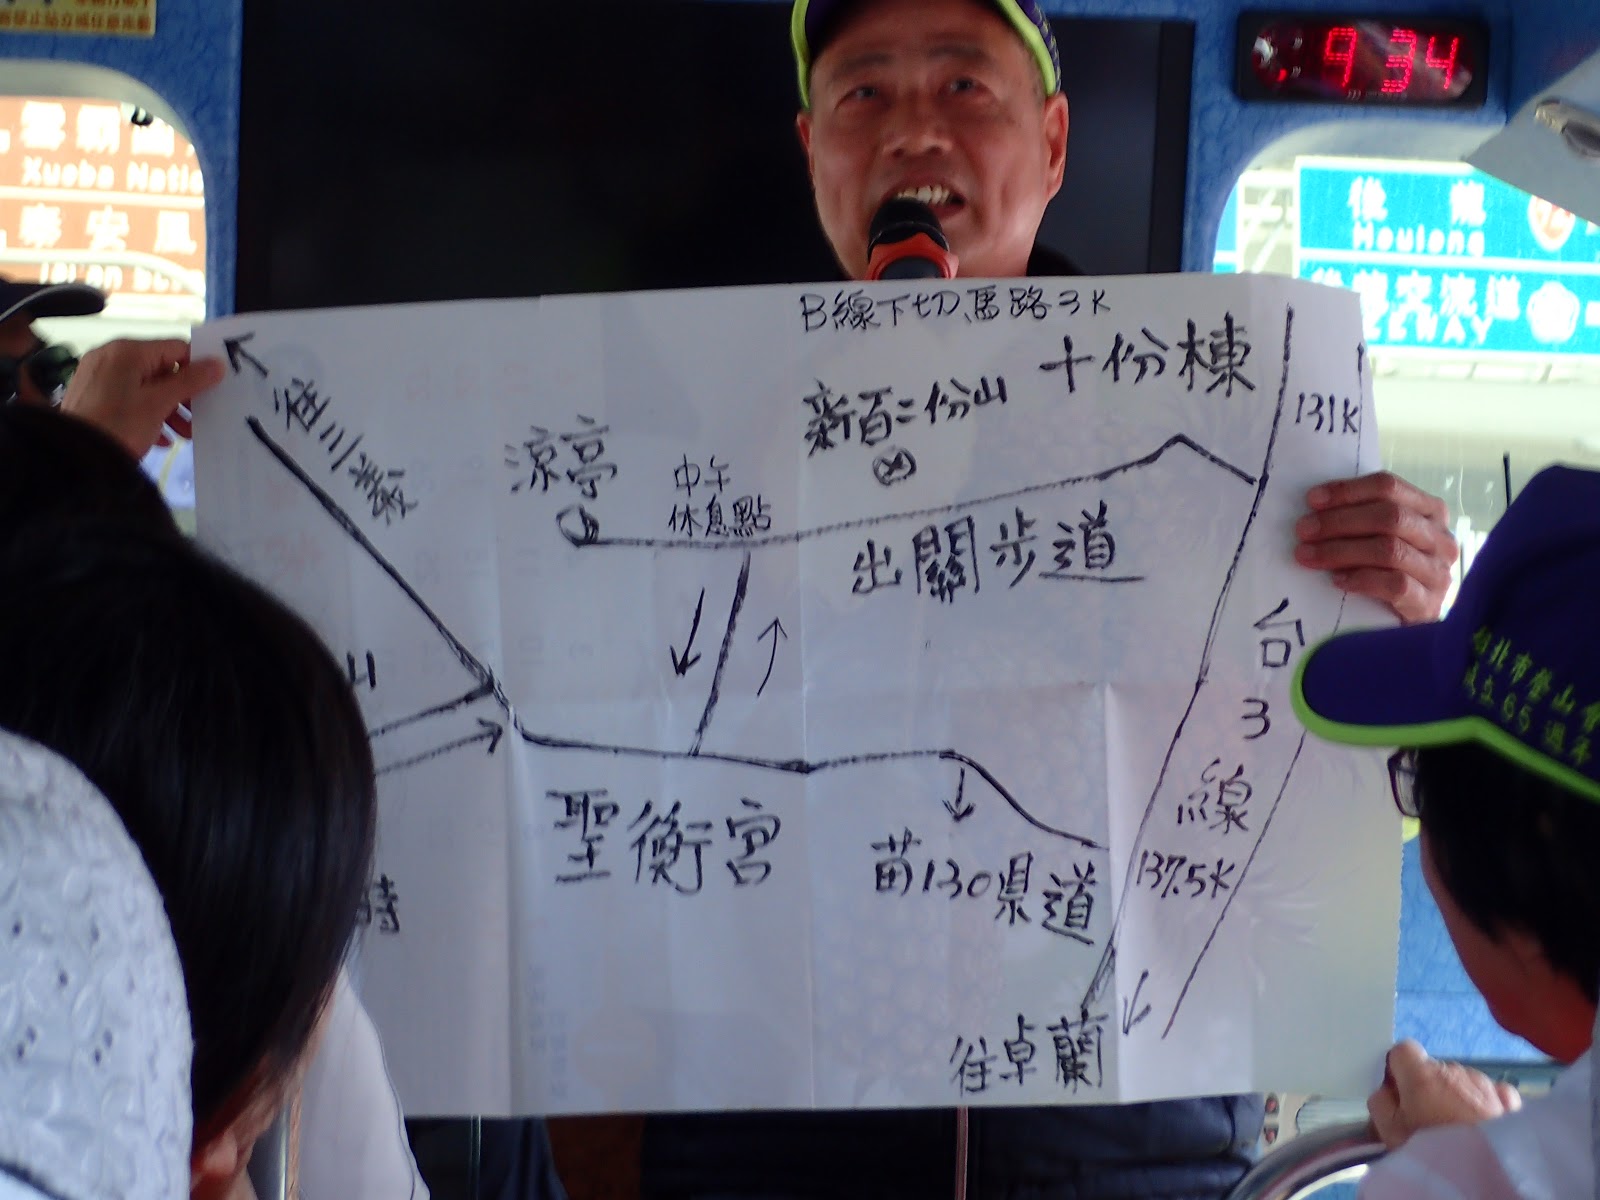 9 34
Xueba Natio
泰安風
後龍
Houlong
後龍交流道
B線下切馬路3K
十份棟
新百二份山
131K
往三義
涼亭
中午
休息點
出關步道
台3線
山
聖衡宮
苗130県道
137.5K
時
往卓蘭
台北市登山會
成立65週年